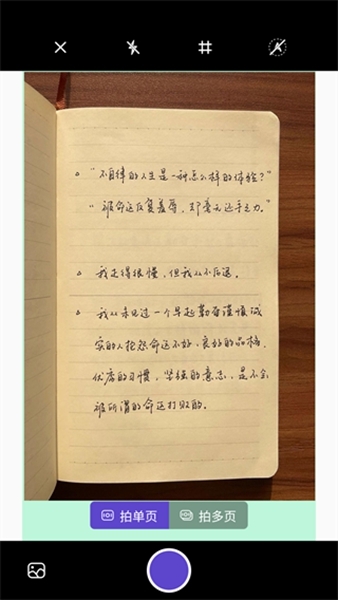 "不自律的人生是一种怎么样的体验?"
"被命运反复羞辱,却毫无还手之力。"
我走得很慢,但我从不后退。
我从未见过一个早起勤奋谨慎诚
实的人抱怨命运不好,良好的品格,
优良的习惯,坚强的意志,是不会
被所谓的命运打败的。
拍单页
拍多页